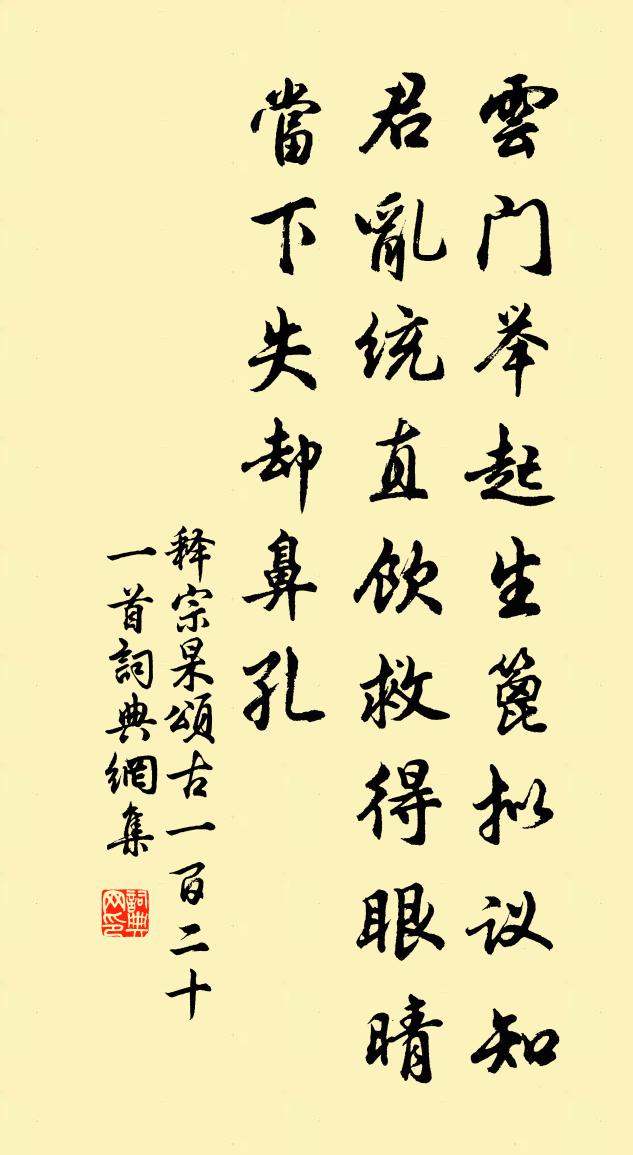 雲门举起生篦拟议知
君亂統直饮救得眼晴
當下失却鼻孔
释宗杲頌古一百二十
一首詞典網集
詞典
网印